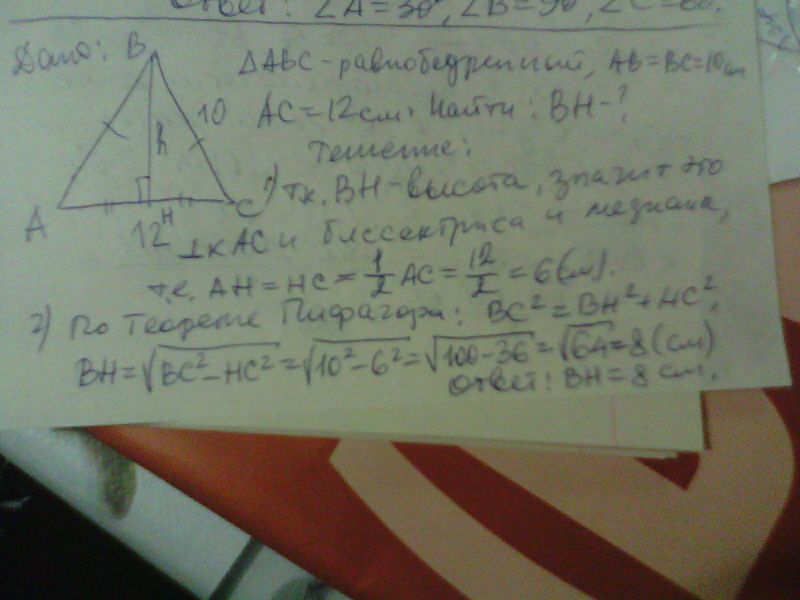 Ответ: ∠A=30°, ∠B=90°, ∠C=60°.
Дано:
B
ΔABC-равнобедренный, AB=BC=10см
10
AC=12см. Найти: BH-?
h
Решение:
A
12
H
C
1) т.к. BH-высота, значит это
⊥ к AC и биссектриса и медиана,
т.е. AH=HC=1/2 AC=12/2=6(см).
2) По Теореме Пифагора: BC²=BH²+HC²,
BH=√BC²-HC²=√10²-6²=√100-36=√64=8(см)
Ответ: BH=8 см.